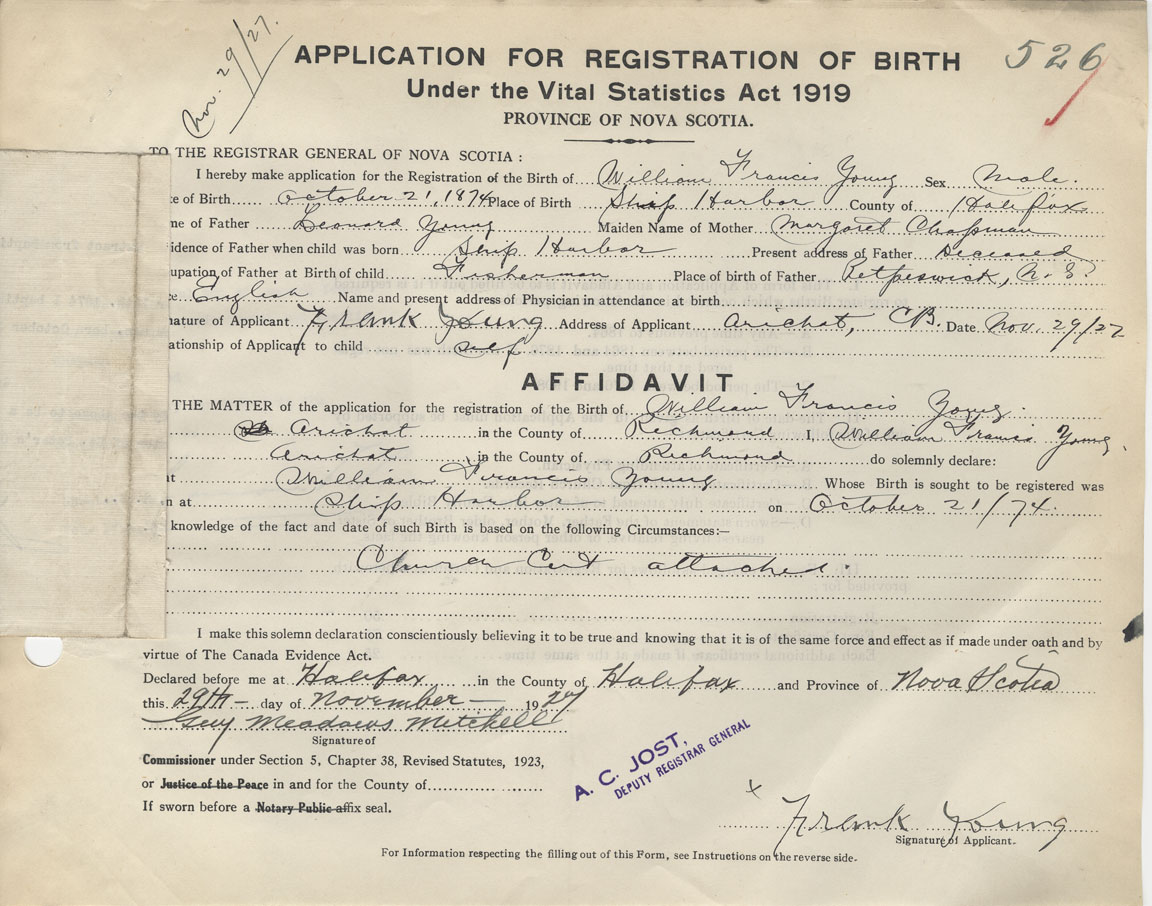 Nov. 29/27.
526
APPLICATION FOR REGISTRATION OF BIRTH
Under the Vital Statistics Act 1919
PROVINCE OF NOVA SCOTIA.
TO THE REGISTRAR GENERAL OF NOVA SCOTIA :
I hereby make application for the Registration of the Birth of William Francis Young Sex Male.
te of Birth October 21, 1874 Place of Birth Ship Harbor County of Halifax
ne of Father Leonard Young Maiden Name of Mother Margaret Chapman
idence of Father when child was born Ship Harbor Present address of Father Deceased
upation of Father at Birth of child Fisherman Place of birth of Father Petpeswick, N.S.
e. English Name and present address of Physician in attendance at birth
nature of Applicant Frank Young Address of Applicant Arichat, CB. Date Nov. 29/27
ationship of Applicant to child self
AFFIDAVIT
THE MATTER of the application for the registration of the Birth of William Francis Young.
Arichat in the County of Richmond I, William Francis Young
Arichat in the County of Richmond do solemnly declare:
t William Francis Young Whose Birth is sought to be registered was
n at Ship Harbor on October 21/74.
knowledge of the fact and date of such Birth is based on the following Circumstances:—
Church Cert attached.
I make this solemn declaration conscientiously believing it to be true and knowing that it is of the same force and effect as if made under oath and by
virtue of The Canada Evidence Act.
Declared before me at Halifax in the County of Halifax and Province of Nova Scotia
this 29th day of November 1927
Guy Meadows Mitchell
Signature of
Commissioner under Section 5, Chapter 38, Revised Statutes, 1923,
or Justice of the Peace in and for the County of
If sworn before a Notary Public affix seal.
A. C. JOST,
DEPUTY REGISTRAR GENERAL
x Frank Young
Signature of Applicant.
For Information respecting the filling out of this Form, see Instructions on the reverse side.